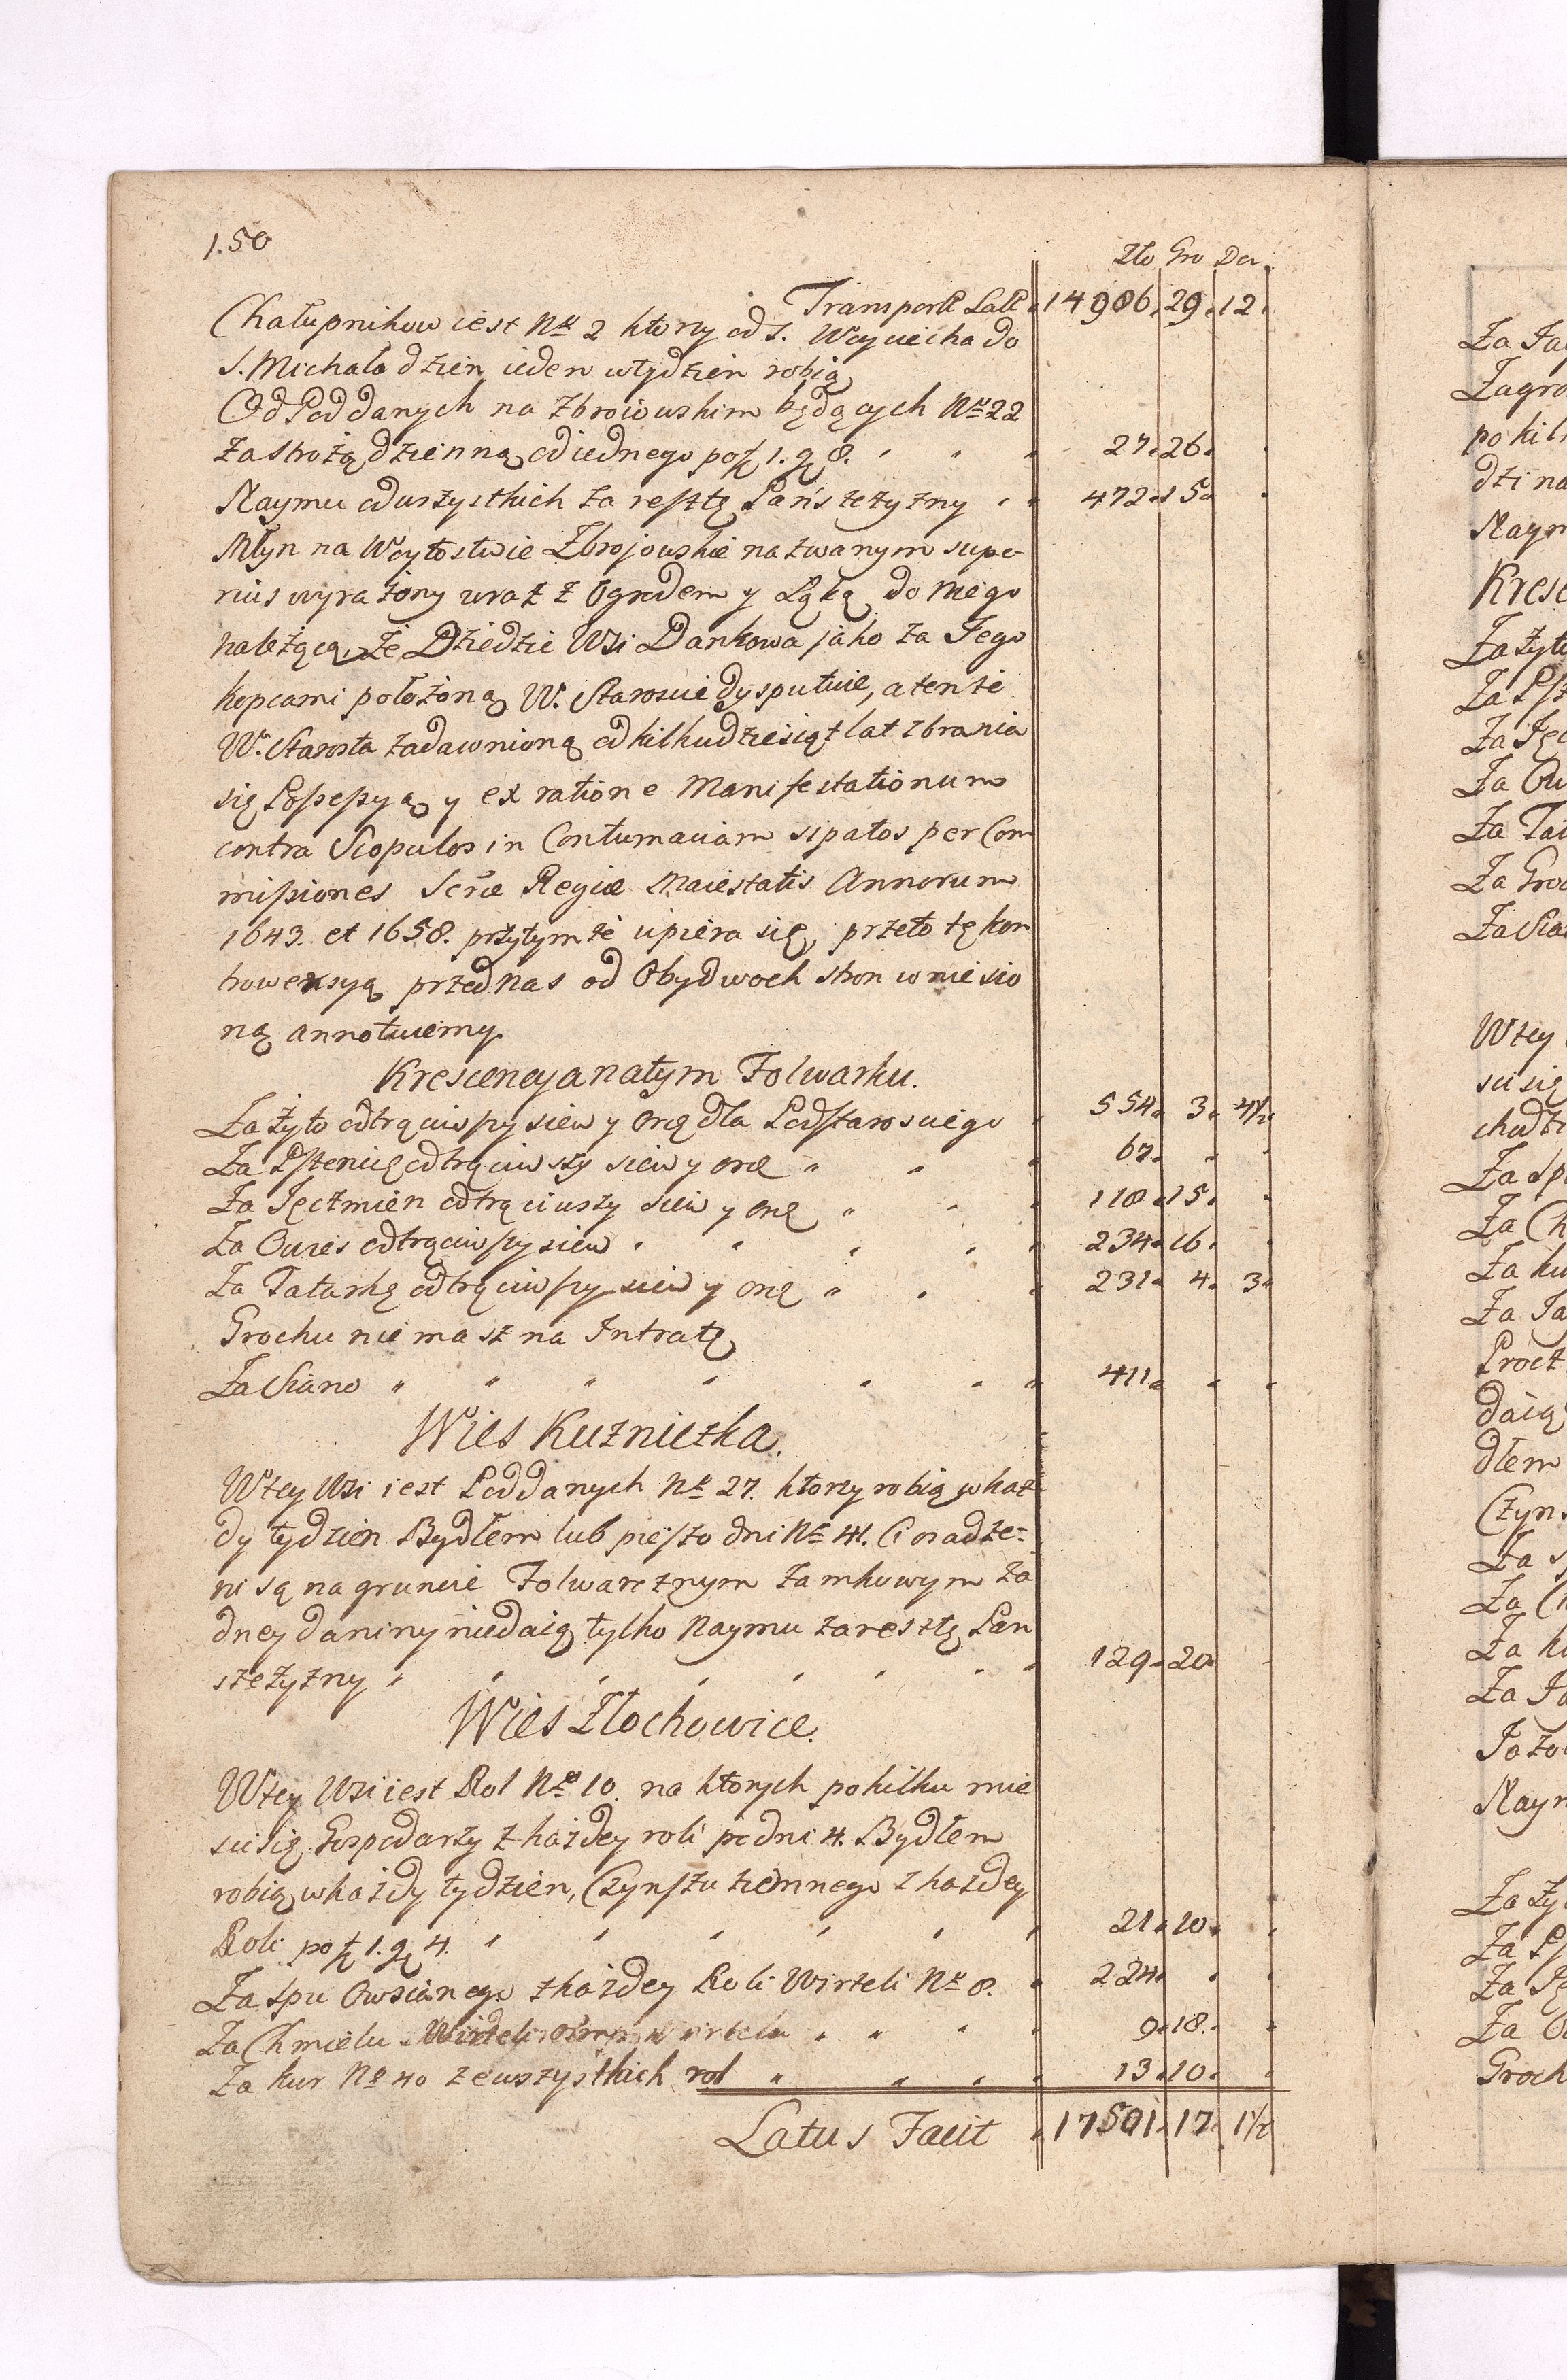 1.50
Zło Gro Den
Transport Late 14906. 29. 12.
Chałupnikow iest Nr 2 ktorzy od S. Woyciecha do
S. Michała dzien ieden wtydzien robią
Od Poddanych na Zbroiowskim będących Nr 22
Za Strożą dzienną od iednego po zł 1. g 8. 27. 26.
Naymu od wszystkich za resztę Panszczyzny 472. 15.
Młyn na Woytostwie Zbrojowskie nazwanym supe-
rius wyrażony wraz z Ogrodem y Łąką do niego
należącą, że Dziedzic Wsi Dankowa jako za Jego
kopcami położoną W. Staroscie dysputuie, a tenże
W. Starosta zadawnioną od kilkudziesiąt lat zbrania
się Possessyą y ex ratione Manifestationum
contra Scopulos in Contumaciam sipatos per Com
missiones Scrae Regiae Maiestatis Annorum
1643. et 1658. przytymże upiera się, przeto tę kon
trowersyą przed nas od Obydwoch stron wniesio
ną annotuiemy.
Krescencya na tym Folwarku.
Za żyto odtrąciwszy siew y orę dla Podstarosciego 554. 3. 4½.
Za Pszenicę odtrąciwszy siew y orę 67.
Za Jęczmien odtrąciwszy siew y orę 118. 15.
Za Owies odtrąciwszy siew 234. 16.
Za Tatarkę odtrąciwszy siew y orę 231. 4. 3.
Grochu nie masz na Intratę
Za Siano 411.
Wies Kuzniczka.
W tey Wsi iest Poddanych Nr 27. ktorzy robią w każ
dy tydzien Bydłem lub pieszo dni Nr 41. Ci osadze-
ni są na gruncie Folwarcznym Zamkowym ża
dney daniny niedaią tylko Naymu za resztę Pan
szczyzny 129. 20.
Wies Złochowice.
W tey Wsi iest Rol Nr 10. na ktorych po kilku mie
sci się Gospodarzy z każdey roli po dni 4. Bydłem
robią w każdy tydzien, Czynszu ziemnego z każdey
Roli po zł 1. g 4. 21. 10.
Za Spu Owsianego z każdey Roli Wirteli Nr 8. 224.
Za Chmielu 9. 18.
Za kur No 40 ze wszystkich rol 13. 10.
Latus Facit 17501. 17. 1½